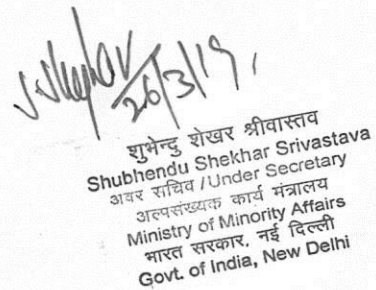 26/3/19,
शुभेन्दु शेखर श्रीवास्तव
Shubhendu Shekhar Srivastava
अवर सचिव / Under Secretary
अल्पसंख्यक कार्य मंत्रालय
Ministry of Minority Affairs
भारत सरकार, नई दिल्ली
Govt. of India, New Delhi